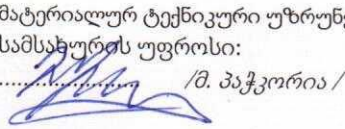 მატერიალურ ტექნიკური უზრუნვ
სამსახურის უფროსი:
.................... /მ. პაჭკორია /